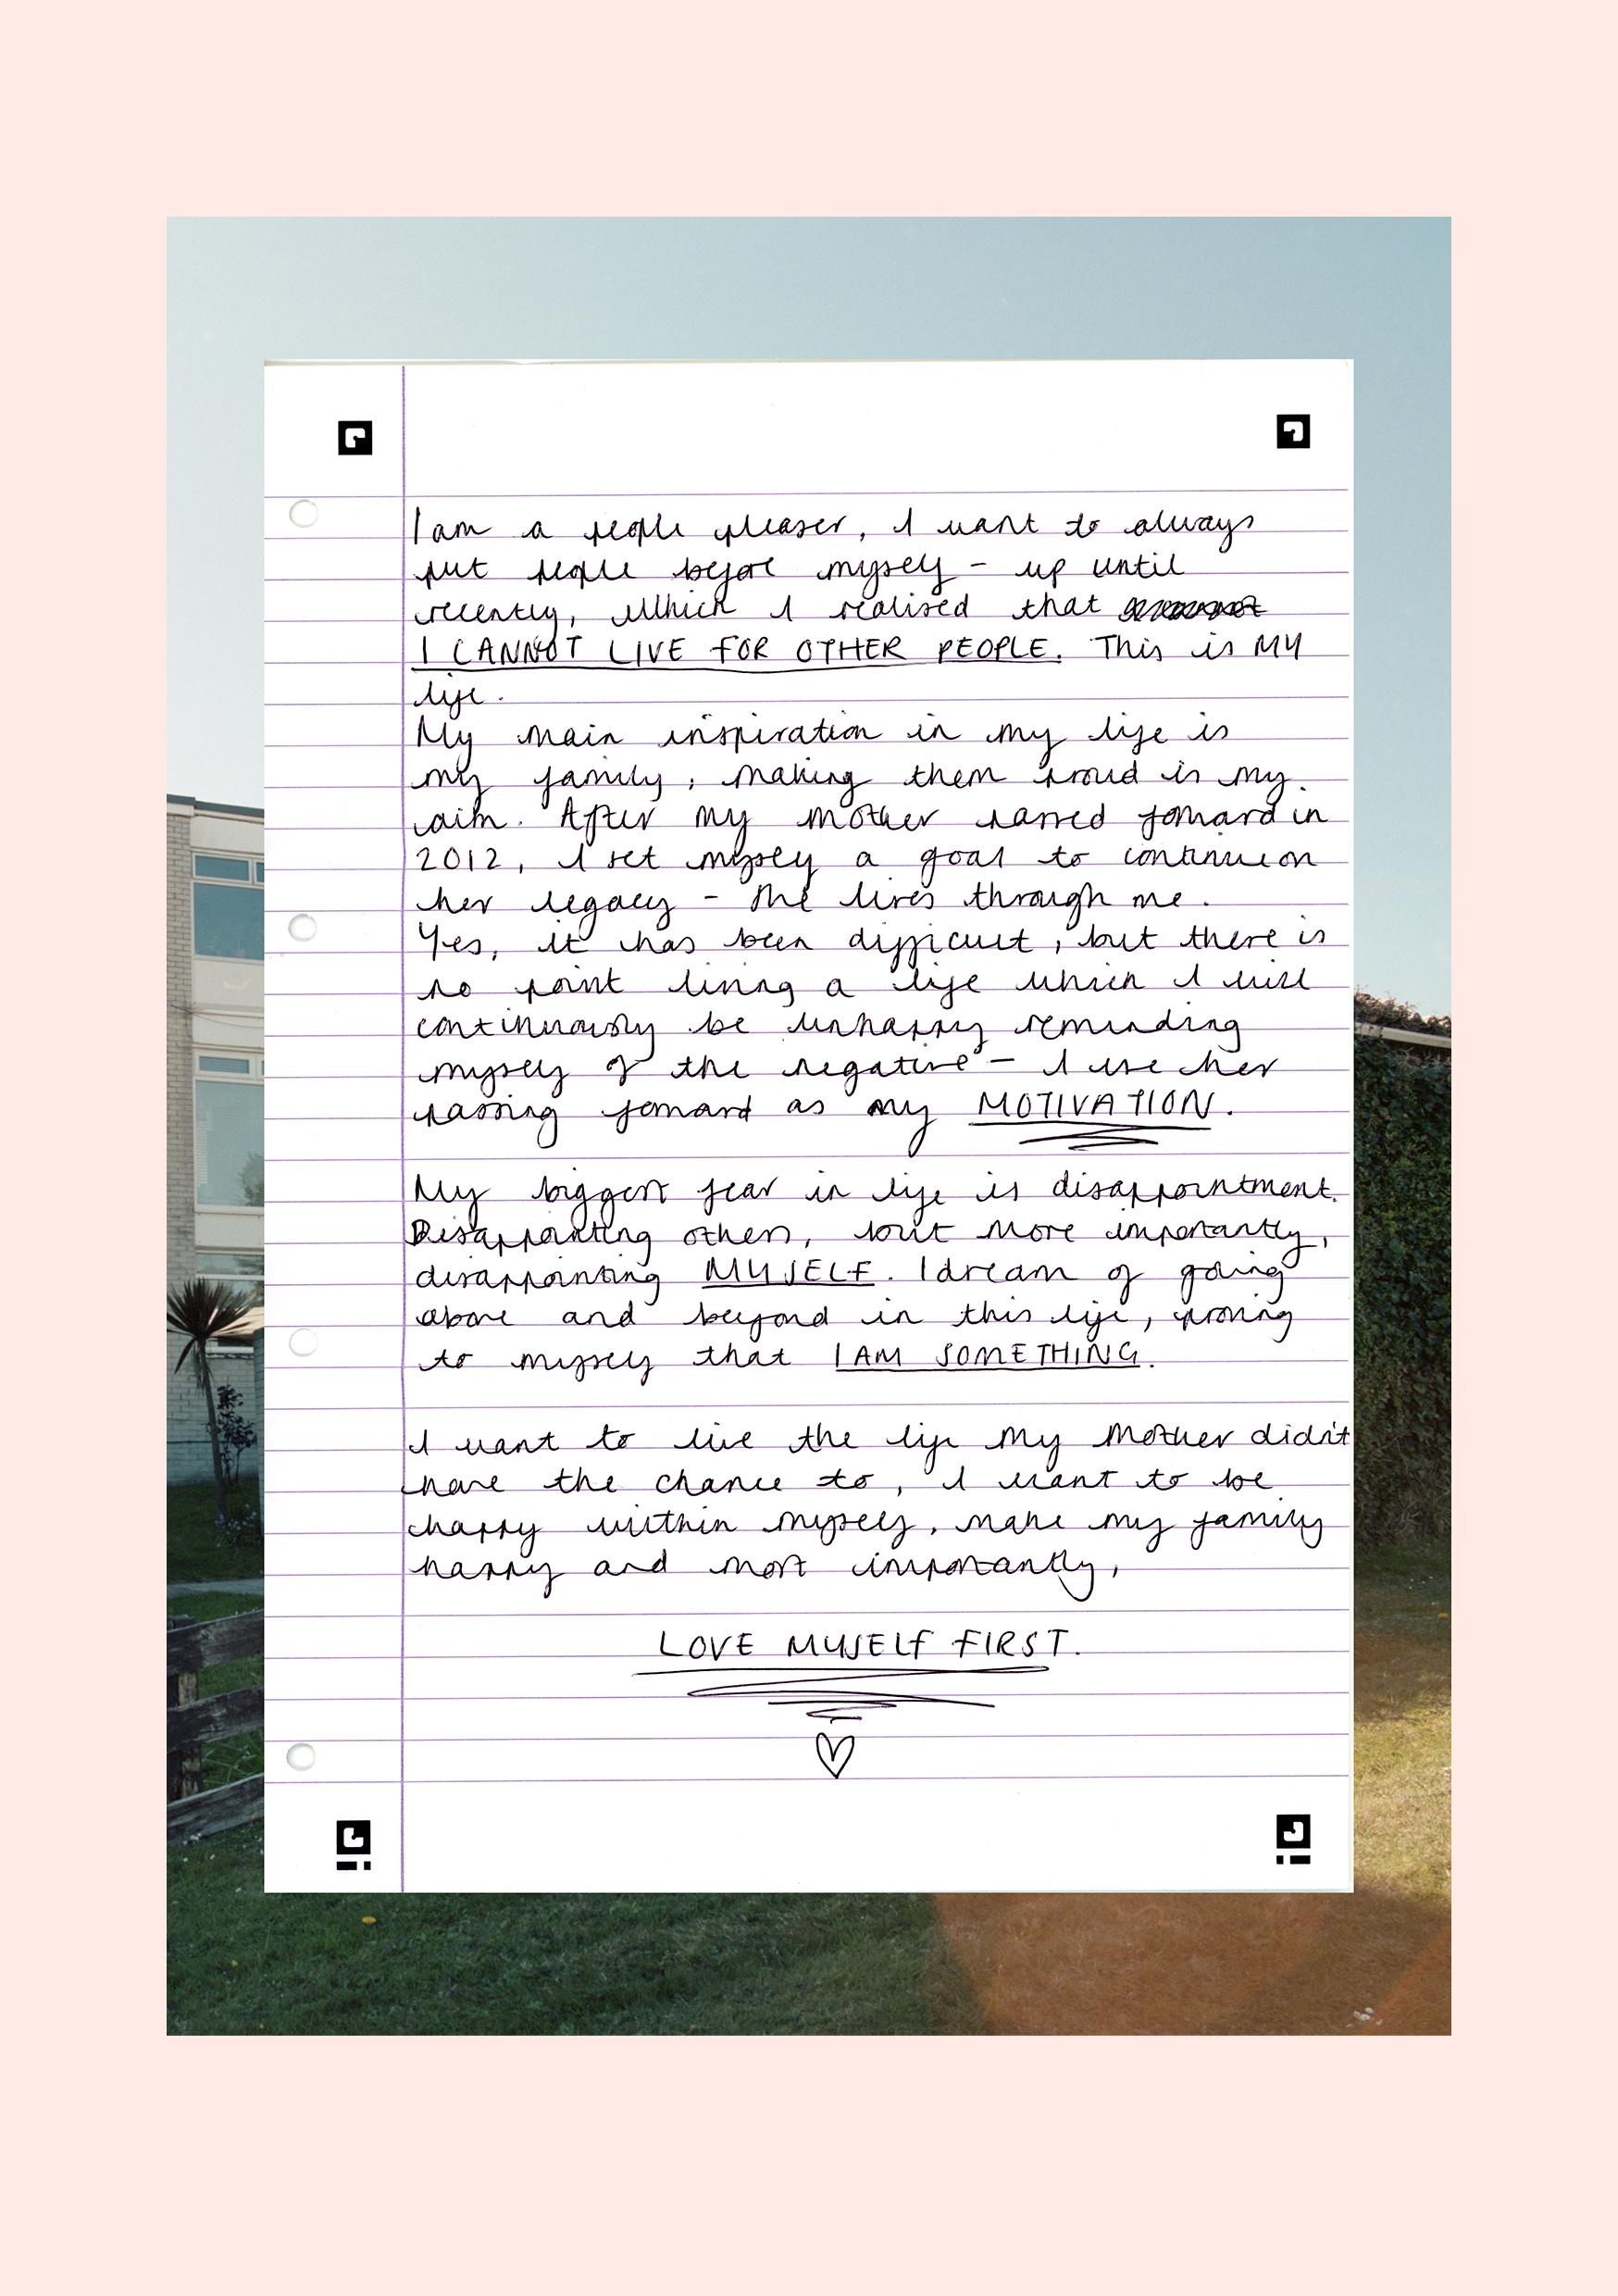 I am a people pleaser, I want to always
put people before myself - up until
recently, which I realised that
I CANNOT LIVE FOR OTHER PEOPLE. This is MY
life.
My main inspiration in my life is
my family, making them proud is my
aim. After my mother passed forward in
2012, I set myself a goal to continue on
her legacy - she lives through me.
Yes, it has been difficult, but there is
no point living a life which I will
continuously be unhappy reminding
myself of the negative - I use her
passing forward as my MOTIVATION.
My biggest fear in life is disappointment.
Disappointing others, but more importantly,
disappointing MYSELF. I dream of going
above and beyond in this life, proving
to myself that I AM SOMETHING.
I want to live the life my mother didn't
have the chance to, I want to be
happy within myself, make my family
happy and most importantly,
LOVE MYSELF FIRST.